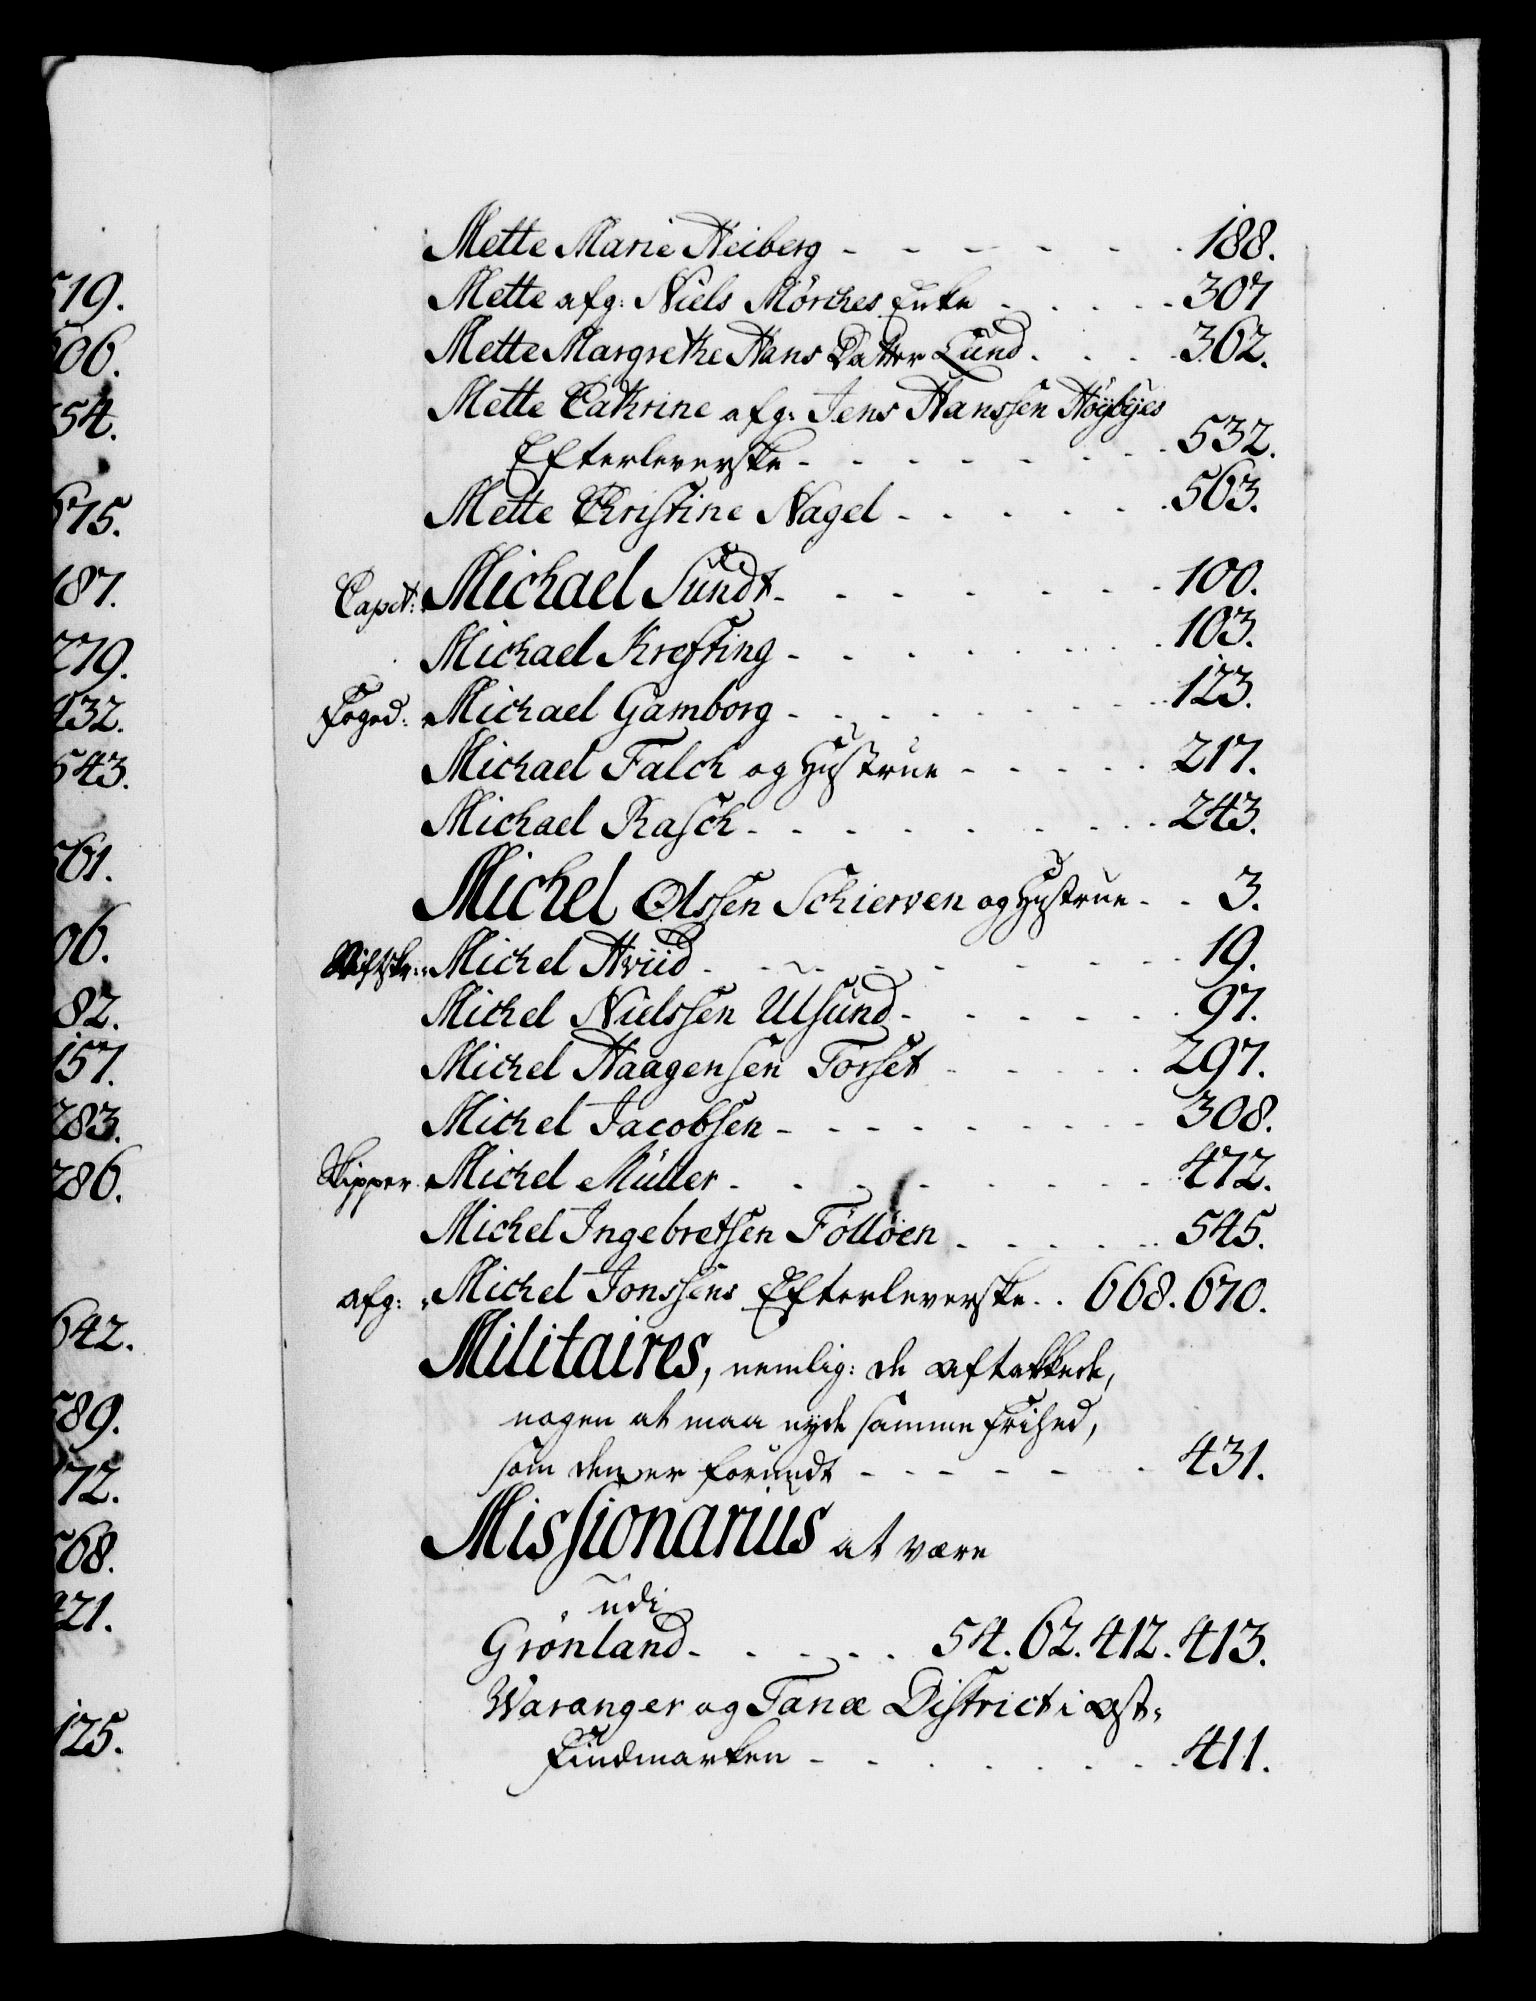 519.
606.
554.
675.
187.
279.
432.
543.
561.
06.
82.
157.
283.
286.
642.
589.
172.
568.
421.
125.
Mette Marie Heiberg - - - - - - 188.
Mette afg: Niels Mörches Enke - - - - 307
Mette Margrethe Hans Datter Lund . . . 362.
Mette Cathrine afg: Jens Hanssen Höybÿes
Efterleverske - - - - - - - 532.
Mette Christine Nagel - - - - - 563.
Capit: Michael Sundt - - - - - - - 100.
Michael Krefting - - - - - - - 103.
Foged: Michael Gamborg - - - - - - - 123.
Michael Falch og Hustrue - - - - 217.
Michael Rasch - - - - - - - - 243.
Michel Olssen Schierven og Hustrue - - 3.
Michel Hviid - - - - - - - - 19.
Michel Nielssen Ulsund - - - - - - 97.
Michel Haagensen Torset - - - - 297.
Michel Jacobsen - - - - - - - - 308.
Skipper Michel Müller - - - - - - - - 472.
Michel Ingebretsen Föllöen - - - - - 545.
afg: Michel Jonssens Efterleverske . . 668. 670.
Militaires, nemlig: de aftakkede,
nogen at maa nyde samme Frihed,
som dem er forundt - - - - - - 431.
Missionarius at være
udi
Grönland - - - - - 54. 62. 412. 413.
Waranger og Tanæ District i Ost-
Findmarken - - - - - - - 411.